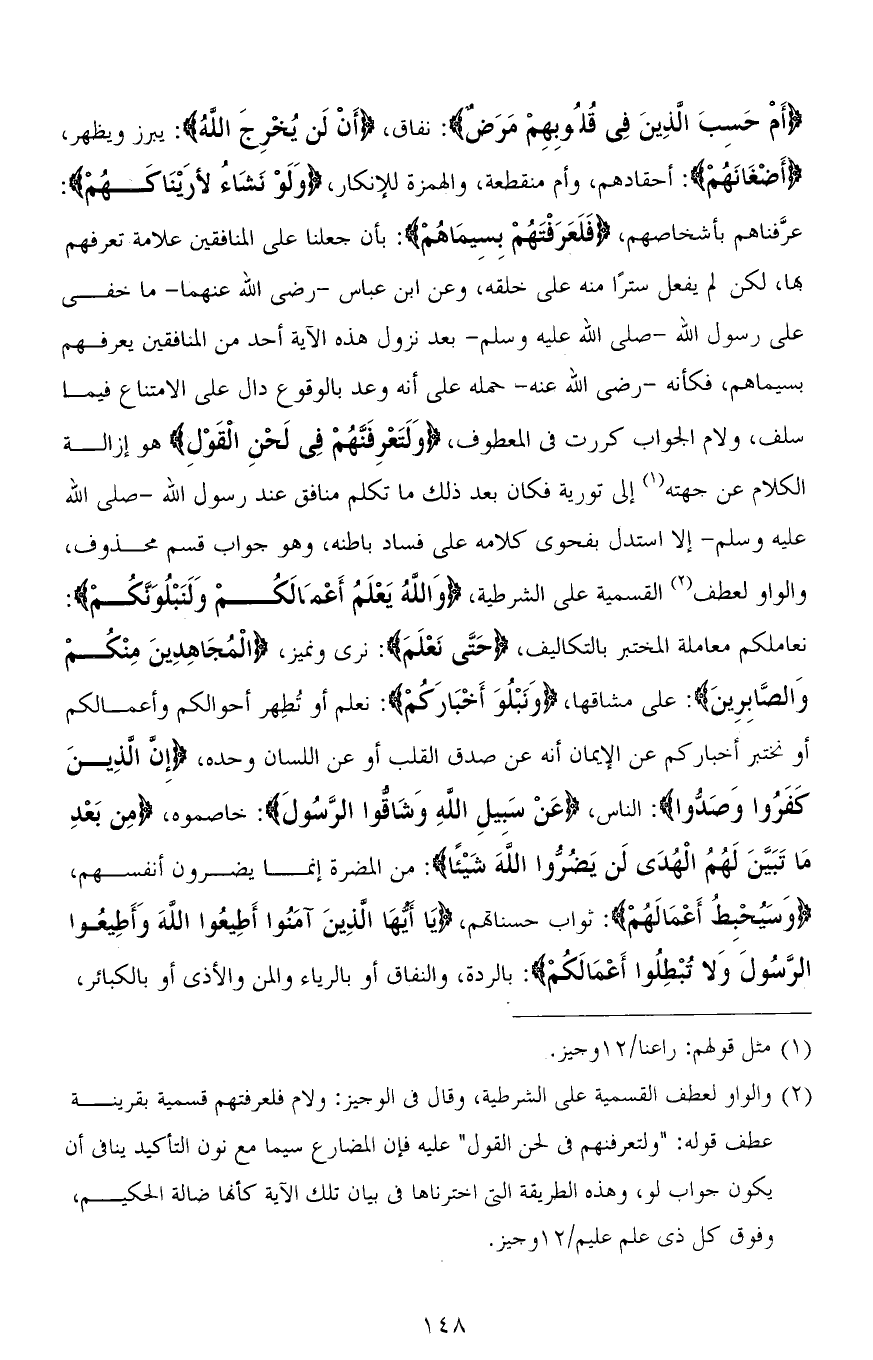 ﴿أَمْ حَسِبَ الَّذِينَ فِى قُلُوبِهِمْ مَرَضٌ﴾: نفاق، ﴿أَنْ لَن يُخْرِجَ اللَّهُ﴾: يبرز ويظهر،
﴿أَضْغَانَهُمْ﴾: أحقادهم، وأم منقطعة، والهمزة للإنكار، ﴿وَلَوْ نَشَاءُ لأرَيْنَاكَـــهُمْ﴾:
عرَّفناهم بأشخاصهم، ﴿فَلَعَرَفْتَهُمْ بِسِيمَاهُمْ﴾: بأن جعلنا على المنافقين علامة تعرفهم
بها، لكن لم يفعل سترًا منه على خلقه، وعن ابن عباس -رضى الله عنهما- ما خفـــى
على رسول الله -صلى الله عليه وسلم- بعد نزول هذه الآية أحد من المنافقين يعرفـهم
بسيماهم، فكأنه -رضى الله عنه- حمله على أنه وعد بالوقوع دال على الامتناع فيمـا
سلف، ولام الجواب كررت فى المعطوف، ﴿وَلَتَعْرِفَنَّهُمْ فِى لَحْنِ الْقَوْلِ﴾ هو إزالـــة
الكلام عن جهته(١) إلى تورية فكان بعد ذلك ما تكلم منافق عند رسول الله -صلى الله
عليه وسلم- إلا استدل بفحوى كلامه على فساد باطنه، وهو جواب قسم محـــذوف،
والواو لعطف(٢) القسمية على الشرطية، ﴿وَاللَّهُ يَعْلَمُ أَعْمَالَكُـــمْ وَلَنَبْلُوَنَّكُـــمْ﴾:
نعاملكم معاملة المختبر بالتكاليف، ﴿حَتَّى نَعْلَمَ﴾: نرى ونميز، ﴿الْمُجَاهِدِينَ مِنْكُـــمْ
وَالصَّابِرِينَ﴾: على مشاقها، ﴿وَنَبْلُوَ أَخْبَارَكُمْ﴾: نعلم أو تُظهر أحوالكم وأعمـــالكم
أو نختبر أخباركم عن الإيمان أنه عن صدق القلب أو عن اللسان وحده، ﴿إِنَّ الَّذِيـــنَ
كَفَرُوا وَصَدُّوا﴾: الناس، ﴿عَنْ سَبِيلِ اللَّهِ وَشَاقُّوا الرَّسُولَ﴾: خاصموه، ﴿مِن بَعْدِ
مَا تَبَيَّنَ لَهُمُ الْهُدَى لَن يَضُرُّوا اللَّهَ شَيْئًا﴾: من المضرة إنمـــا يضـــرون أنفســـهم،
﴿وَسَيُحْبِطُ أَعْمَالَهُمْ﴾: ثواب حسناتهم، ﴿يَا أَيُّهَا الَّذِينَ آمَنُوا أَطِيعُوا اللَّهَ وَأَطِيعُـوا
الرَّسُولَ وَلا تُبْطِلُوا أَعْمَالَكُمْ﴾: بالردة، والنفاق أو بالرياء والمن والأذى أو بالكبائر،
(١) مثل قولهم: راعنا/١٢وجيز.
(٢) والواو لعطف القسمية على الشرطية، وقال فى الوجيز: ولام فلعرفتهم قسمية بقرينـــة
عطف قوله: "ولتعرفنهم فى لحن القول" عليه فإن المضارع سيما مع نون التأكيد ينافى أن
يكون جواب لو، وهذه الطريقة التى اخترناها فى بيان تلك الآية كأنها ضالة الحكيـــم،
وفوق كل ذى علم عليم/١٢وجيز.
١٤٨